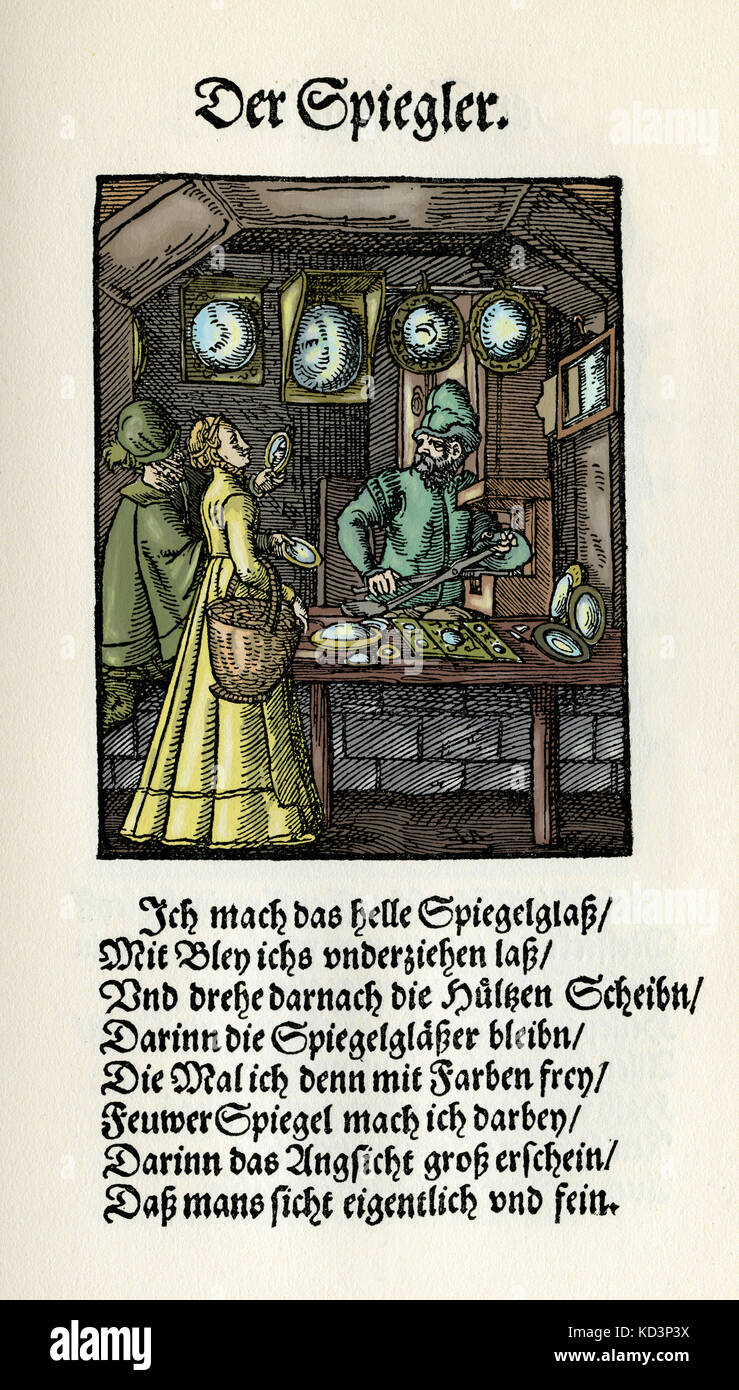 Der Spiegler.
Ich mach das helle Spiegelglaß/
Mit Bley ichs vnderziehen laß/
Vnd drehe darnach die Hültzen Scheibn/
Darinn die Spiegelgläßer bleibn/
Die Mal ich denn mit Farben frey/
Feuwer Spiegel mach ich darbey/
Darinn das Angsicht groß erschein/
Daß mans sicht eigentlich vnd fein.
a
alamy
a
a
alamy
a
a
alamy
Image ID: KD3P3X
www.alamy.com